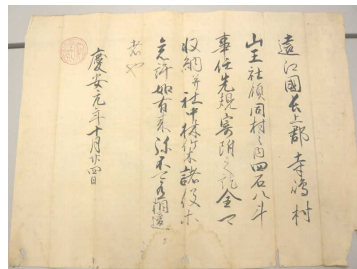 遠江國長上郡寺嶋村
山王社領同村之内四石八斗
事任先規寄附之訖全可
収納并社中林竹木諸役等
免許如有来弥不可有相違
者也
慶安元年十月廿四日